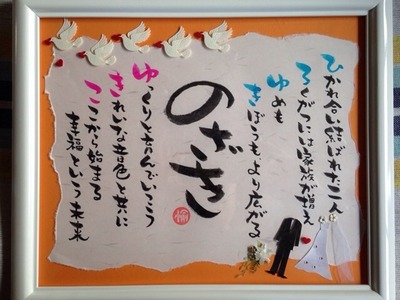 ひかれ合い結ばれた二人
ろくがつには家族が増え
ゆめも
きぼうもより広がる
のざき
ゆっくりと歩んでいこう
きれいな音色と共に
ここから始まる
幸福という未来